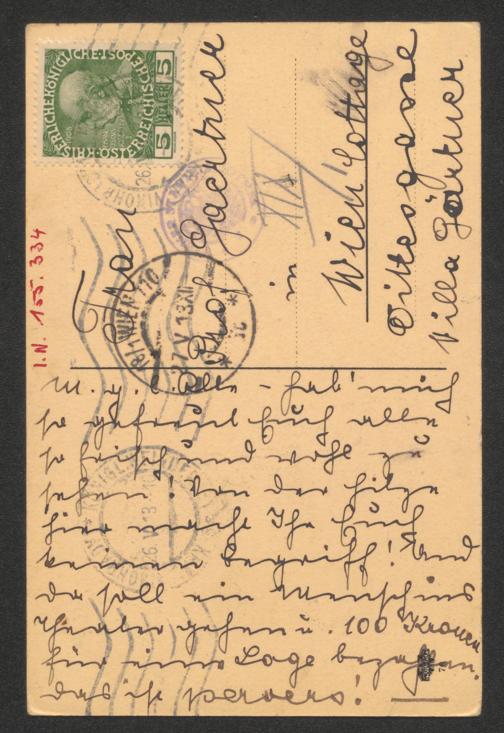 KAISERLICHE KÖNIGLICHE ÖSTERREICHISCHE POST
5 HELLER 5
Frau
Prof Gaertner
in
Wien Cottage
Dittesgasse
Villa Gärtner
XIX
18/1 WIEN 110
27.V.13 XII
* 1c *
I.N. 155.334
m. g. L. Alle - hab' mich
so gefreut Euch alle
so frisch und wohl zu
sehen! Von der Hitze
hier macht Ihr Euch
keinen Begriff! Und
da soll ein Mensch ins
Theater gehen u. 100 Kronen
für eine Loge bezahlen.
das ist pervers!